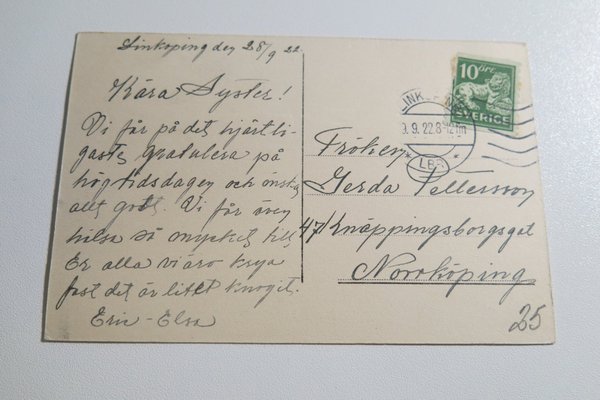 Linköping den 28/9 22
Kära Syster!
Vi får på det hjärtli-
gaste gratulera på
högtidsdagen och önska
allt gott. Vi får även
hälsa så mycket till
Er alla vi äro krya
fast det är litet knogit.
Eric - Elsa
10 öre
SVERIGE
LINKÖPING
9. 22. 8-12 fm
LBR
Fröken
Gerda Pettersson
47 Knäppingsborgsgat
Norrköping
25